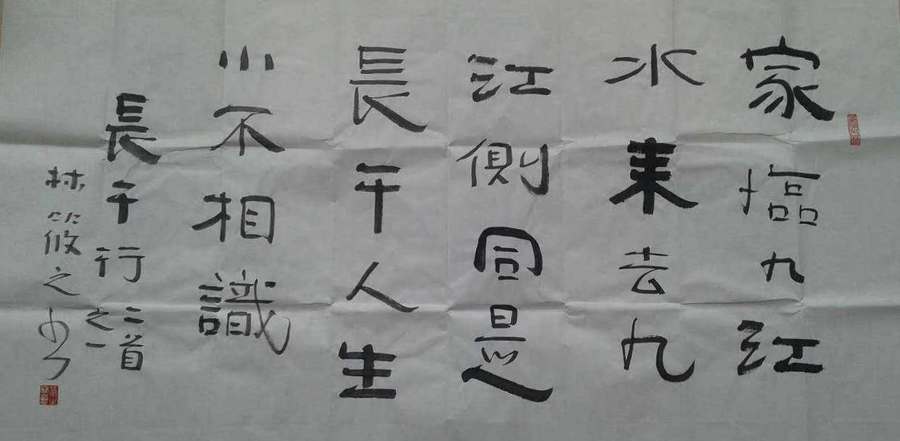 家臨九江
水来去九
江側同是
長干人生
小不相識
長干行二首之一
林筱之书